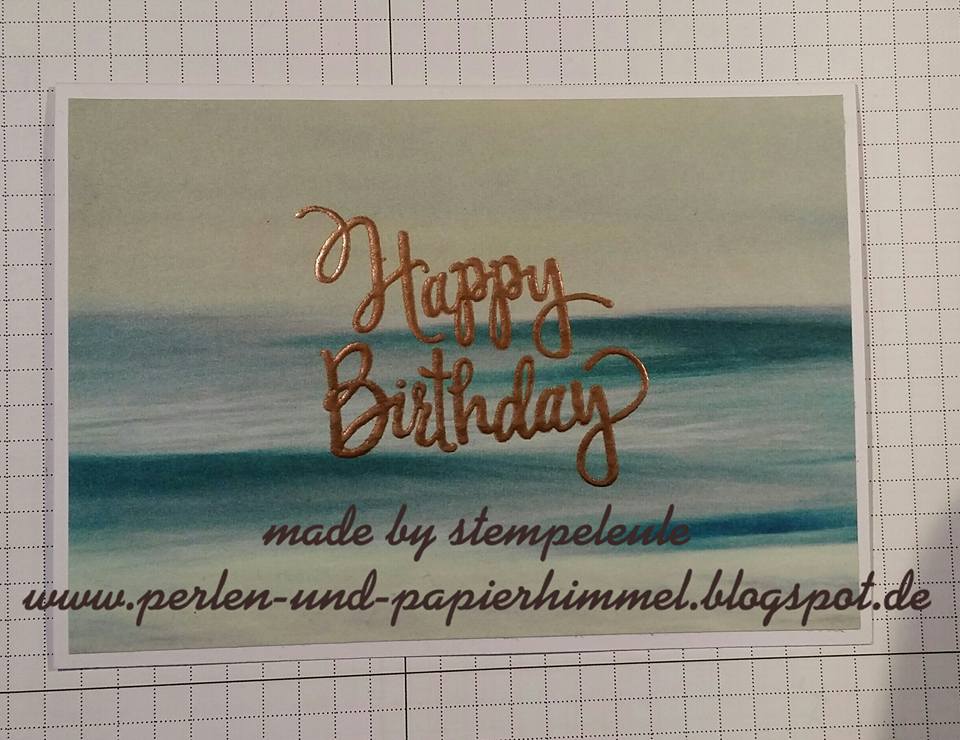 Happy
Birthday
made by stempeleule
www.perlen-und-papierhimmel.blogspot.de